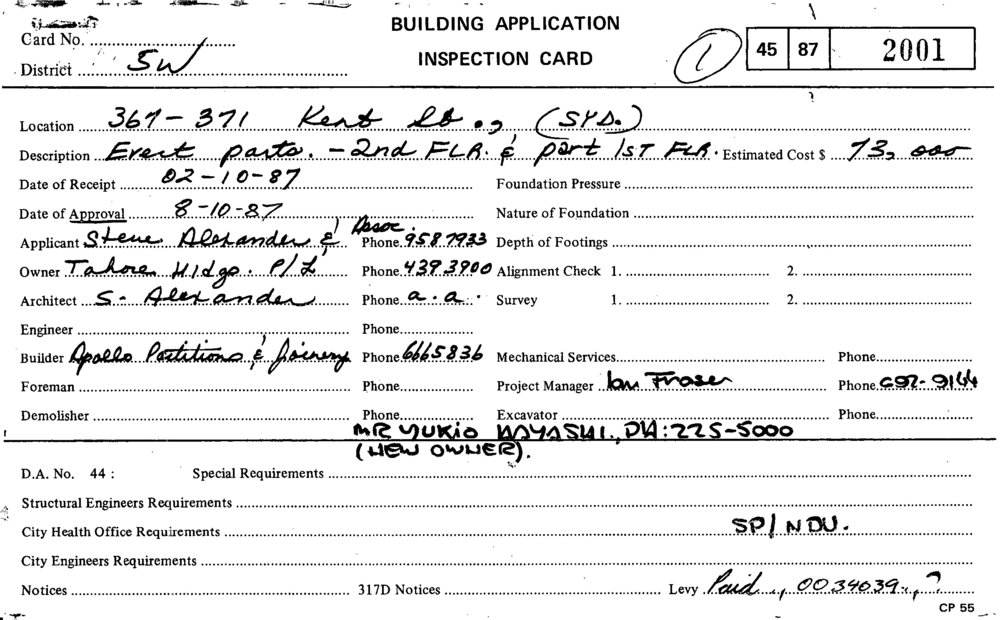 BUILDING APPLICATION
INSPECTION CARD
Card No.
District SW
1 45 87 2001
Location 367-371 Kent St., (SYD.)
Description Erect parts. - 2nd FLR. & part 1ST FLR. Estimated Cost $ 73,000
Date of Receipt 02-10-87 Foundation Pressure
Date of Approval 8-10-87 Nature of Foundation
Applicant Steve Alexander & Assoc. Phone 9587933 Depth of Footings
Owner Tahore Hldgs. P/L Phone 4393900 Alignment Check 1. 2.
Architect S. Alexander Phone a.a. Survey 1. 2.
Engineer Phone
Builder Apollo Partitions & Joinery Phone 6665836 Mechanical Services Phone
Foreman Phone Project Manager Ian Fraser Phone 692-9144
Demolisher Phone Excavator Phone
MR YUKIO HAYASHI, PH: 225-5000
(NEW OWNER).
D.A. No. 44 : Special Requirements
Structural Engineers Requirements
City Health Office Requirements SP/NDU.
City Engineers Requirements
Notices 317D Notices Levy Paid., 0034039., ?
CP 55